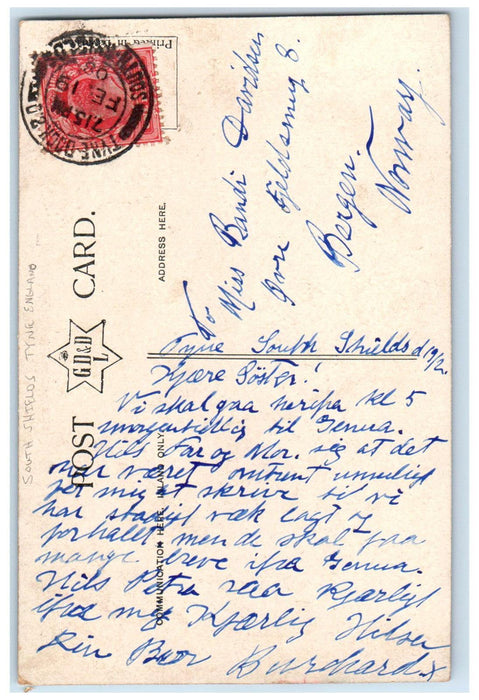 Printed in
SOUTH
7.15 PM
FE 19
POST CARD.
GD&D
L
ADDRESS HERE.
COMMUNICATION HERE. INLAND ONLY.
SOUTH SHIELDS TYNE ENGLAND
To
Miss Randi Davidsen
Øvre Fjeldsmug 8.
Bergen.
Norway.
Tyne South Schields d 19/2.
Kjære Søster!
Vi skal gaa herifra kl 5
morgentidlig til Genua.
Hils Far og Mor. sig at det
har været omtrent umuligt
for mig at skrive ti vi
har stadigt væk lagt og
forhalt men de skal faa
mange breve ifra Genua.
Hils Petra saa kjærligt
ifra mig Kjærlig Hilsen
Din Bror Burchard. x